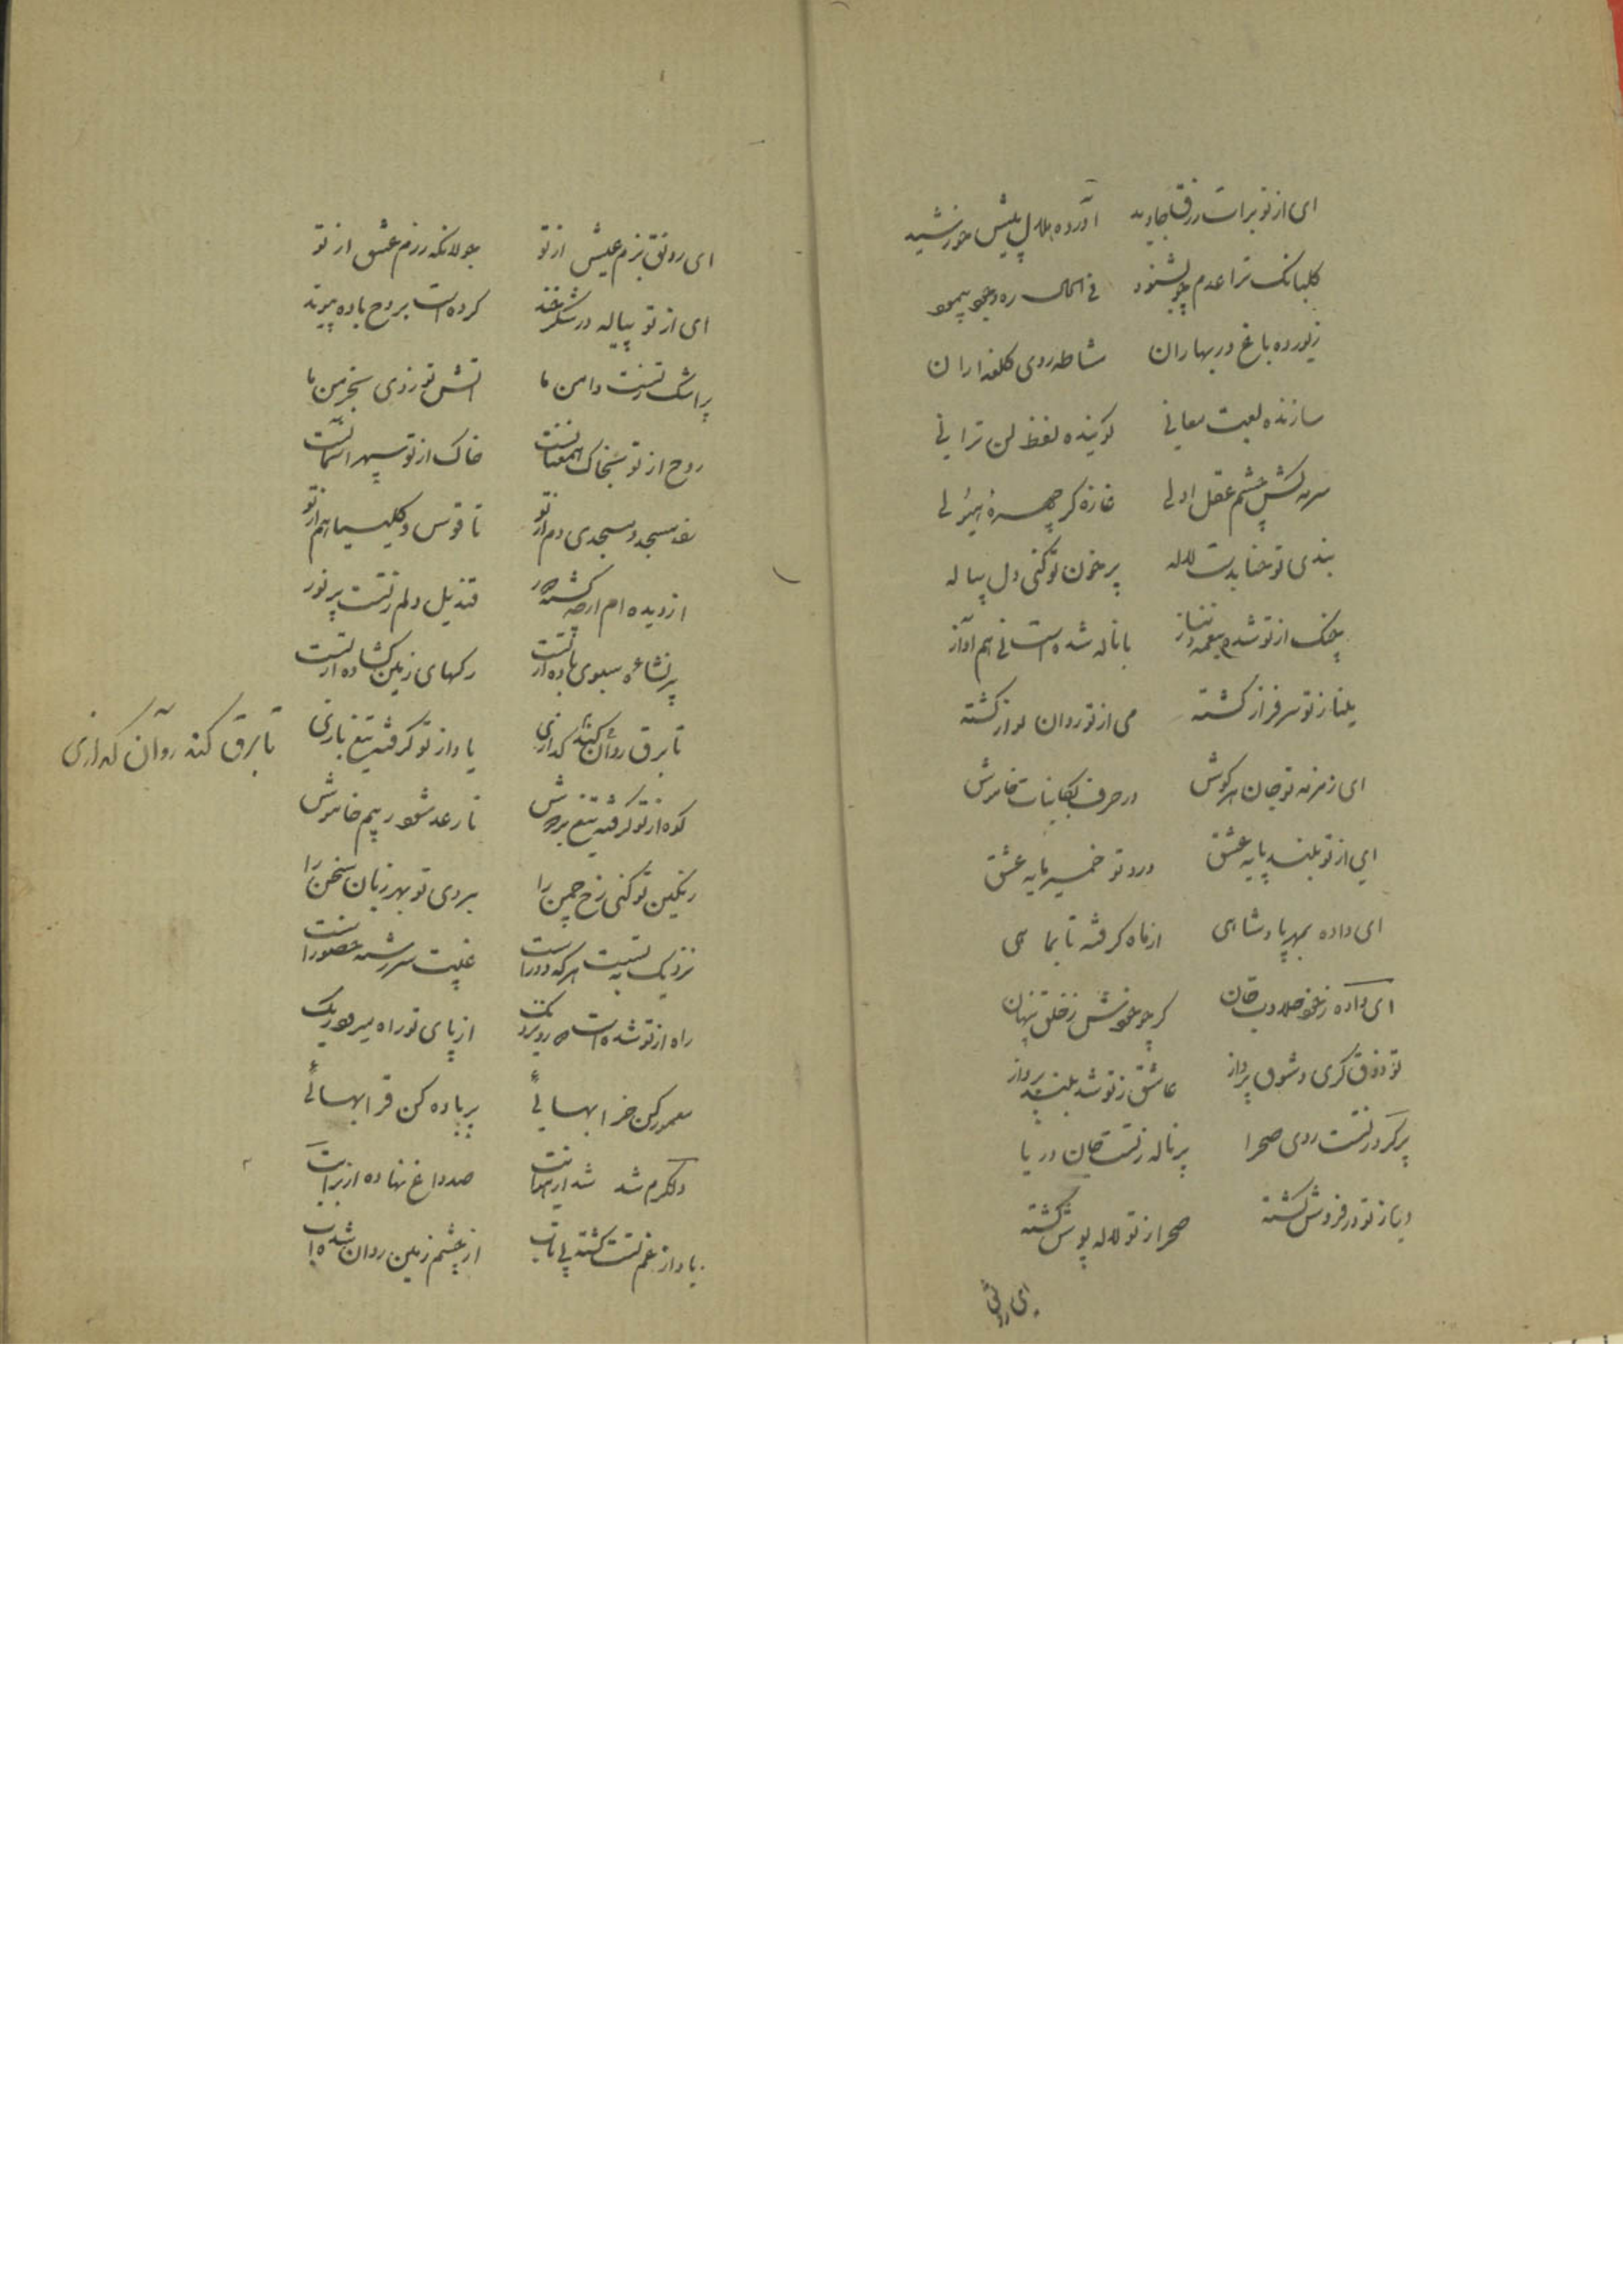 ای از تو برات رزق جاوید آورده هلال پیش خورشید
کلبانک ترا عدم چو بشنود فی الحال ره وجود پیمود
زیور ده باغ در بهاران مشاطه روی کلعذاران
سازنده لعبت معانی کوینده لفظ لن ترانی
سرمه کش چشم عقل اولی غازه کر چهره هیولی
بندی تو حنا بدست لاله پرخون تو کنی دل پیاله
چنک از تو شده بنغمه دمساز با ناله شده است نی هم آواز
مینا ز تو سرفراز کشته می از تو روان نواز کشته
ای زمزمه تو جان هر کوش در حرف کاینات خاموش
ای از تو بلند پایه عشق درد تو خمیر مایه عشق
ای داده بمهر پادشاهی از ماه کرفته تا بماهی
ای داده ز خود صلا دیت جان کر چو خویش ز خلق پنهان
تو ذوق کری و شوق پرداز عاشق ز تو شد بلند پرواز
پر کرد ز تست روی صحرا پر ناله ز تست جان دریا
دریا ز تو در فروش کشته صحرا ز تو لاله پوش کشته
ای رونق
ای رونق بزم عیش از تو جولانکه رزم عشق از تو
ای از تو پیاله در شکرخند کرده است بروح باده پیوند
پر اشک ز تست دامن ما آتش تو زدی بخرمن ما
روح از تو بخاک همعنانست خاک از تو سپهر آسمانست
مسجد و مسجدی دم از تو ناقوس و کلیسیا هم از تو
از دیده ام ار چه کشته قندیل دلم ز تست پر نور
پر نشاءه سبوی باده از تست رکهای زمین کشاده از تست
تا برق روان کند کدازی باد از تو کرفته تیغ بازی
تا برق کند روان کدازی
کوه از تو کرفته تیغ بر دوش تا رعد شود ز بیم خاموش
رنکین تو کنی رخ چمن را بردی تو بهر زبان سخن را
نزدیک به تست هر که دور است غیبت سر رشته حضور است
راه از تو شده است از پای تو راه میرود ریک
معمور کن خرابهائی پر باده کن قرابهائی
دلکرم شد صد داغ نهاده از برایت
باد از غم تست کشته بی تاب از چشم زمین روان شده آب